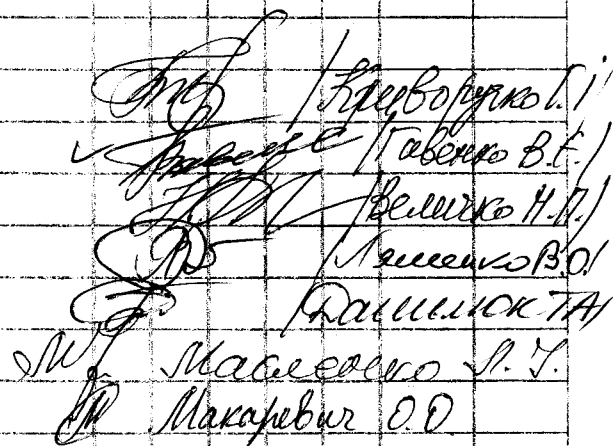 /Криворучко Г.І/
/Гавенко В.Є./
/Величко Н.П./
/Ляшенко В.О./
/Данилюк ТА/
Масленко Л. І.
Макаревич О.О